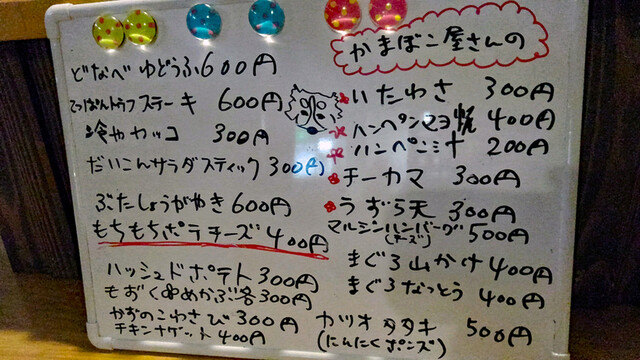 どなべ ゆどうふ600円
てっぱんトウフステーキ 600円
冷ややッコ 300円
だいこんサラダスティック 300円
ぶたしょうがやき 600円
もちもちポテチーズ 400円
ハッシュドポテト 300円
もずくorめかぶ各300円
かずのこわさび 300円
チキンナゲット 400円
かまぼこ屋さんの
いたわさ 300円
ハンペンマヨ焼 400円
ハンペン 200円
チーカマ 300円
うずら天 300円
マルシンハンバーグ 500円
(チーズ)
まぐろ山かけ 400円
まぐろなっとう 400円
カツオタタキ 500円
(にんにくポンズ)